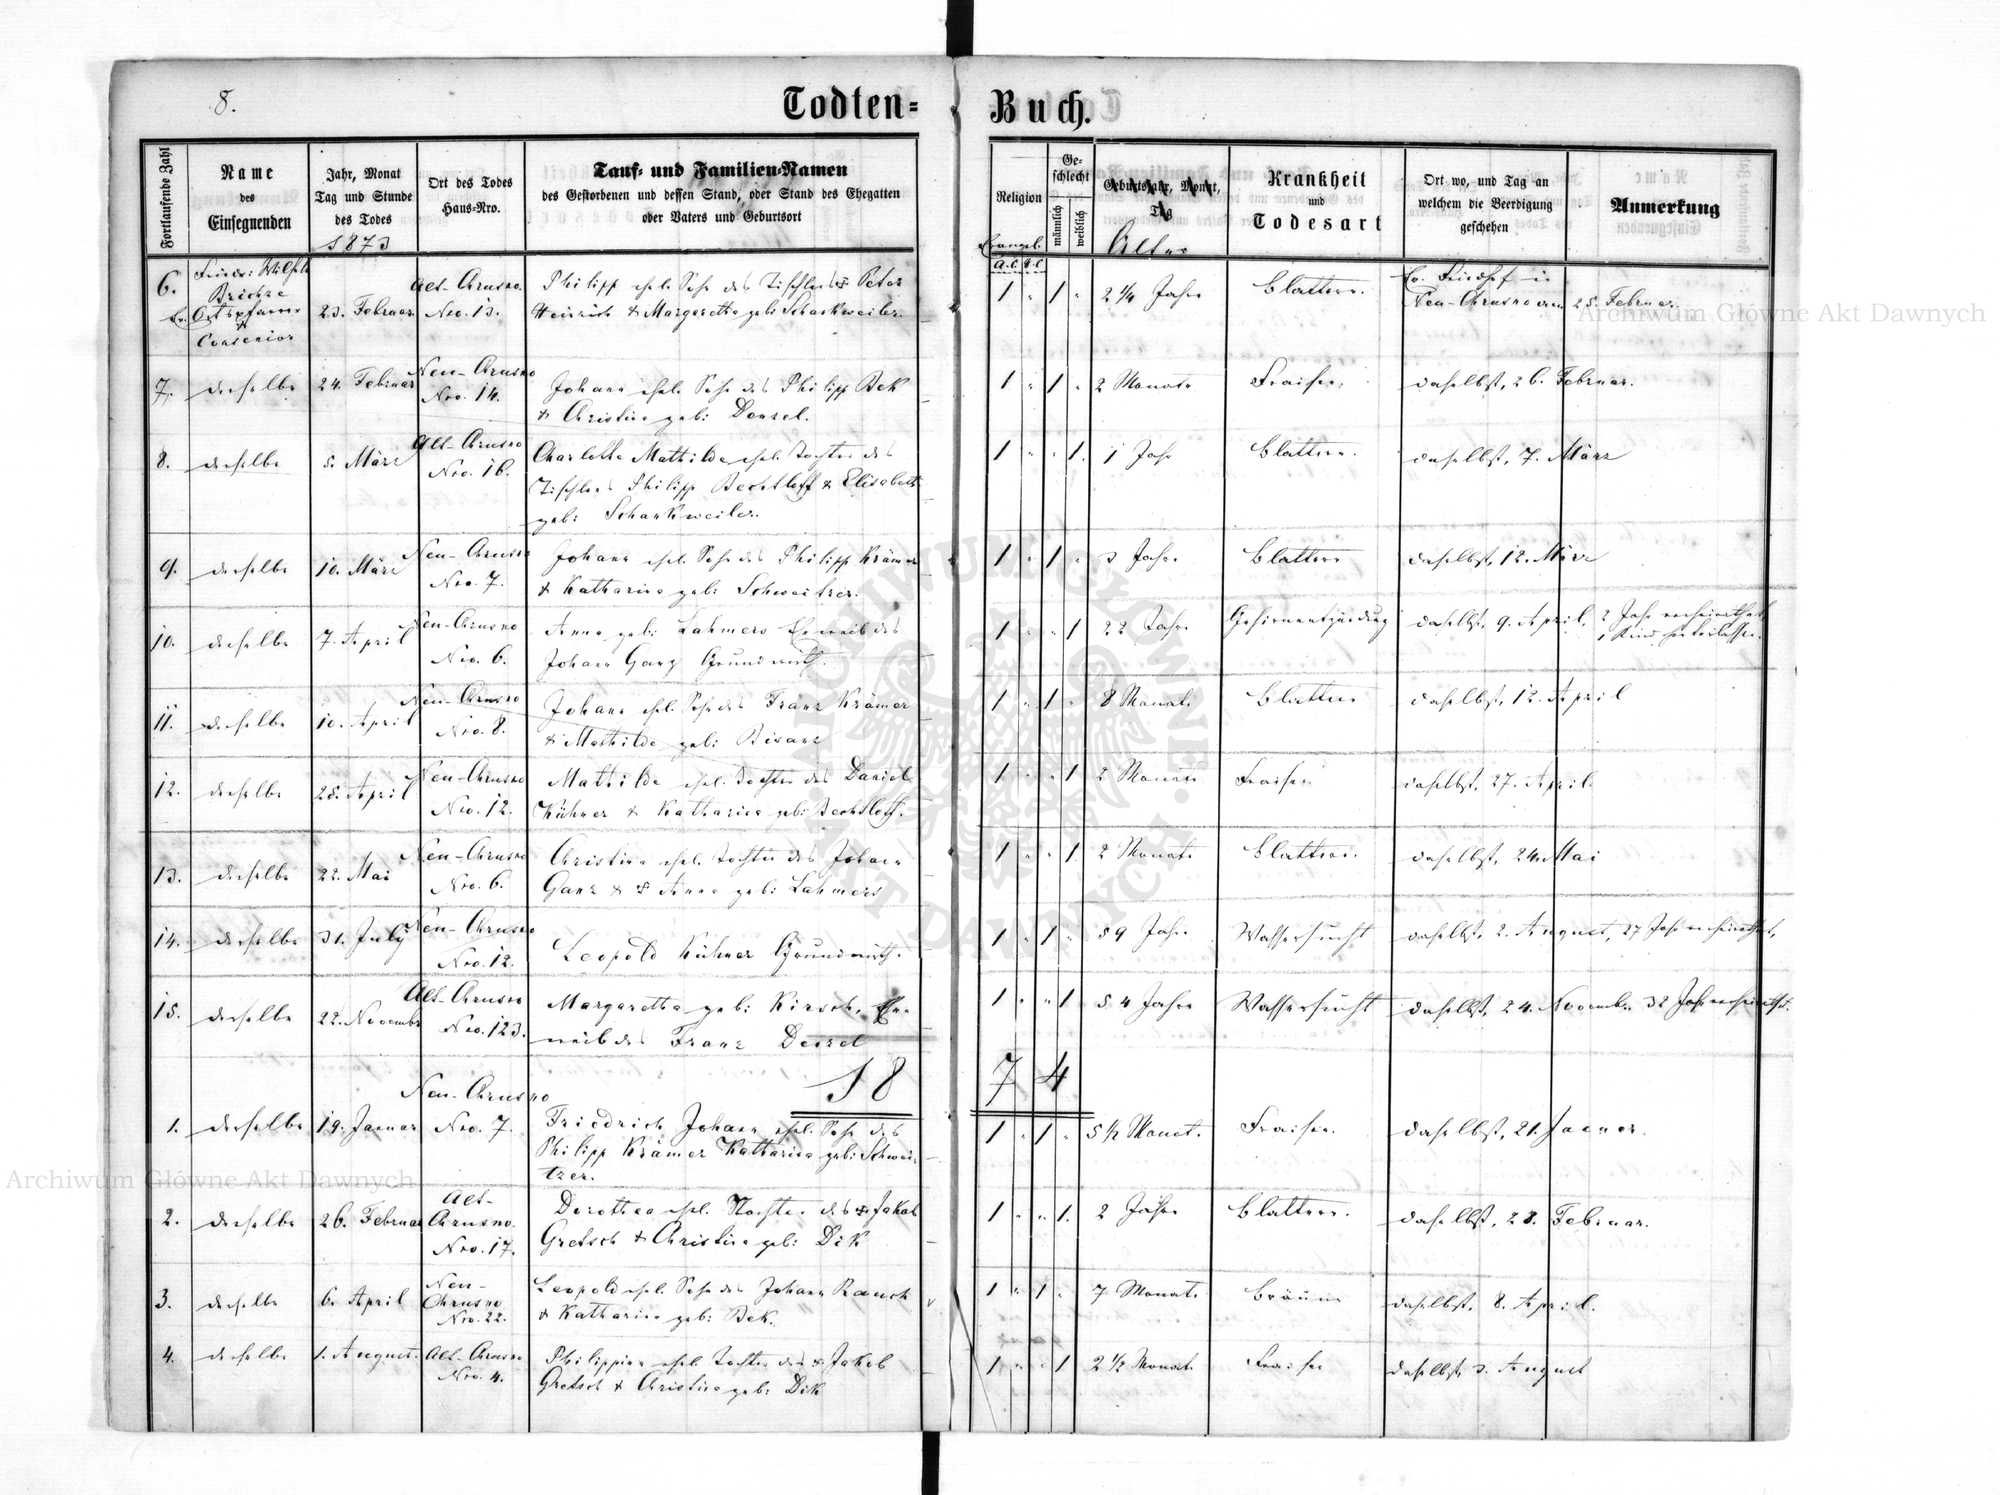 8.
Todten-
Buch.
Fortlaufende Zahl
Name
des
Einsegnenden
Jahr, Monat
Tag und Stunde
des Todes
1873
Ort des Todes
Haus-Nro.
Tauf- und Familien-Namen
des Gestorbenen und dessen Stand, oder Stand des Ehegatten
oder Vaters und Geburtsort
Religion
Evangel.
Ge-
schlecht
männlich
weiblich
Geburtsjahr, Monat,
Tag
Alter
Krankheit
und
Todesart
Ort wo, und Tag an
welchem die Beerdigung
geschehen
Anmerkung
A.C. H.C.
6. Friedr: Wilhelm
Ev. Ortspfarrer
Consenior
23. Februar
Alt-Chrusno.
Nro. 13.
Philipp ehel. Sohn des Tischlers Peter
Heinrich & Margaretha geb: Schankweiler.
1 " 1 " 2 1/4 Jahre Blattern. Ev. Friedhof in
Neu-Chrusno am 25. Februar.
7. derselbe 24. Februar Neu-Chrusno
Nro. 14.
Johann ehel. Sohn des Philipp Bek
& Christina geb: Denzel.
1 " 1 " 2 Monate Fraisen. daselbst, 26. Februar.
8. derselbe 5. März Alt-Chrusno
Nro. 16.
Charlotte Mathilde ehel. Tochter des
Tischlers Philipp Bechtloff & Elisabeth
geb: Schankweiler.
1 " " 1. 1 Jahr Blattern. daselbst, 7. März
9. derselbe 10. März Neu-Chrusno
Nro. 7.
Johann ehel. Sohn des Philipp Krämer
& Katharina geb: Schweitzer.
1 " 1 " 3 Jahre Blattern daselbst, 12. März
10. derselbe 7. April Neu-Chrusno
Nro. 6.
Anna geb: Lahmers Eheweib des
Johann Ganz Grundwirth.
1 " " 1 22 Jahre Gehirnentzündung daselbst, 9. April, 2 Jahr verheirathet,
1 Kind hinterlassen.
11. derselbe 10. April Neu-Chrusno
Nro. 8.
Johann ehel. Sohn des Franz Krämer
& Mathilde geb: Bisanz
1 " 1 " 8 Monate Blattern daselbst, 12. April
12. derselbe 25. April Neu-Chrusno
Nro. 12.
Mathilde ehel. Tochter des Daniel
Kühner & Katharina geb: Bechtloff.
1 " " 1 2 Monate Fraisen daselbst, 27. April.
13. derselbe 22. Mai Neu-Chrusno
Nro. 6.
Christina ehel. Tochter des Johann
Ganz & Anna geb: Lahmers
1 " " 1 2 Monate Blattern. daselbst, 24. Mai
14. derselbe 31. July Neu-Chrusno
Nro. 12.
Leopold Kühner Grundwirth.
1 " 1 " 59 Jahre Wassersucht daselbst, 2. August, 27 Jahr verheirathet,
15. derselbe 22. November Alt-Chrusno
Nro. 123.
Margaretha geb: Kirsch, Ehe-
weib des Franz Denzel
1 " " 1. 54 Jahre Wassersucht daselbst, 24. Novemb. 32 Jahr verheirathet.
18
7 4
1. derselbe 19. Januar Neu-Chrusno
Nro. 7.
Friedrich Johann ehel. Sohn des
Philipp Krämer Katharina geb: Schwei-
tzer.
1 " 1 " 5 1/2 Monat. Fraisen. daselbst, 21. Januar.
2. derselbe 26. Februar Alt-
Chrusno.
Nro. 17.
Dorothea ehel. Tochter des Jakob
Gretsch & Christina geb: Dik
1 " " 1. 2 Jahre Blattern. daselbst, 28. Februar.
3. derselbe 6. April Neu-
Chrusno
Nro. 22.
Leopold ehel. Sohn des Johann Rauch
& Katharina geb: Bek.
1 " 1 " 7 Monate Bräune daselbst, 8. April.
4. derselbe 1. August. Alt-Chrusno
Nro. 4.
Philippina ehel. Tochter des Jakob
Gretsch & Christina geb: Dik
1 " " 1 2 1/2 Monate Fraisen daselbst, 3. August
Archiwum Główne Akt Dawnych
Archiwum Główne Akt Dawnych
ARCHIWUM GŁÓWNE · AKT DAWNYCH ·